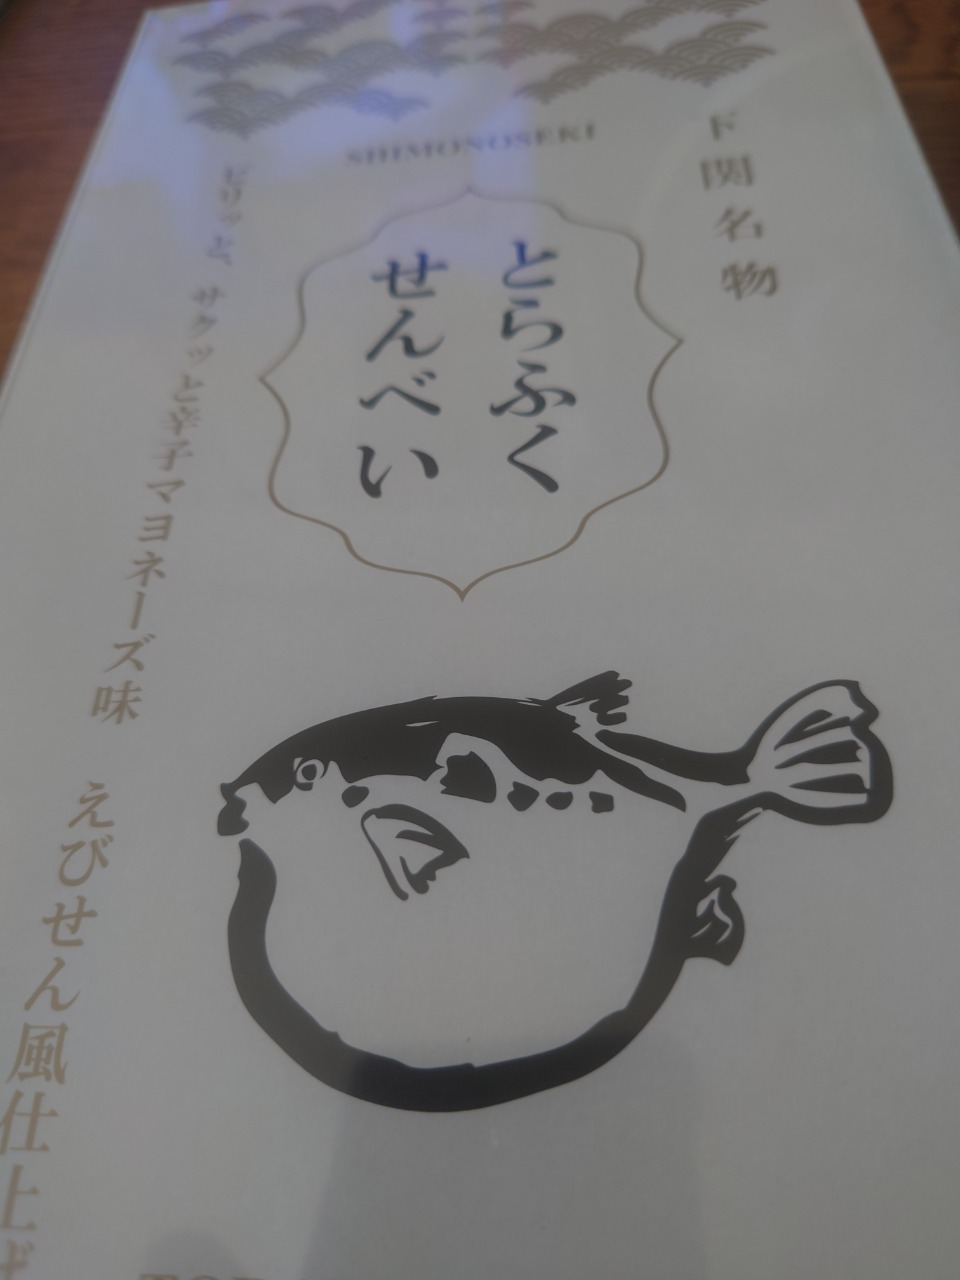 SHIMONOSEKI
下関名物
とらふく
せんべい
ピリッと、サクッと辛子マヨネーズ味 えびせん風仕上げ